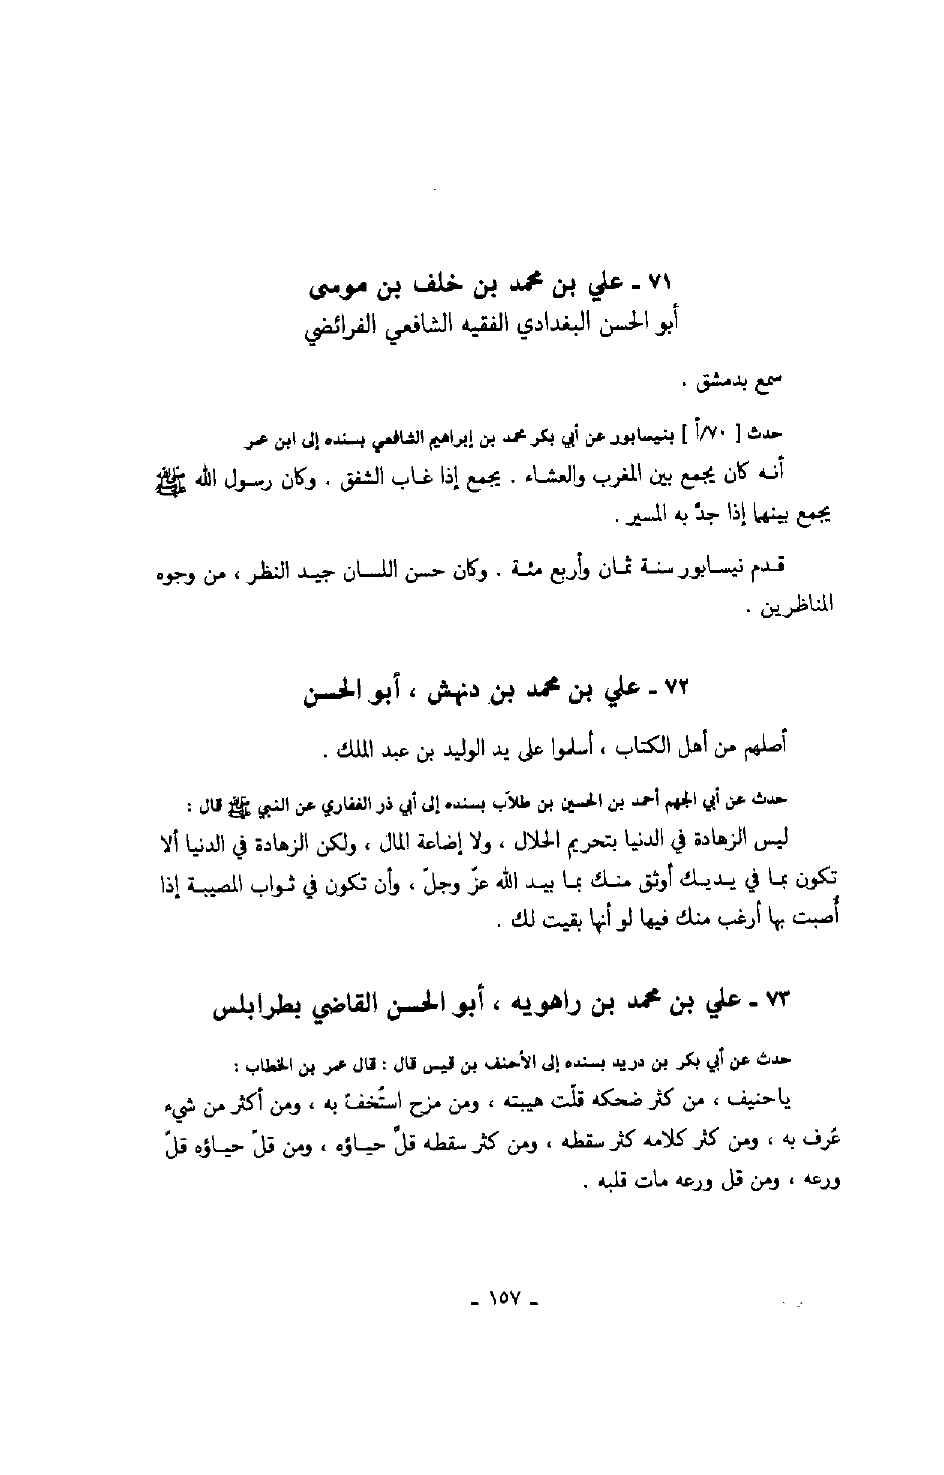 ٧١ ـ علي بن محمد بن خلف بن موسى
أبو الحسن البغدادي الفقيه الشافعي الفرائضي
سمع بدمشق .
حدث [ ٧٠/أ ] بنيسابور عن أبي بكر محمد بن إبراهيم الشافعي بسنده إلى ابن عمر
أنه كان يجمع بين المغرب والعشاء . يجمع إذا غاب الشفق . وكان رسول الله ﷺ
يجمع بينهما إذا جدَّ به المسير .
قدم نيسابور سنة ثمان وأربع مئة . وكان حسن اللسان جيد النظر ، من وجوه
المناظرين .
٧٢ ـ علي بن محمد بن دنهش ، أبو الحسن
أصلهم من أهل الكتاب ، أسلموا على يد الوليد بن عبد الملك .
حدث عن أبي الجهم أحمد بن الحسين بن طلاّب بسنده إلى أبي ذر الغفاري عن النبي ﷺ قال :
ليس الزهادة في الدنيا بتحريم الحلال ، ولا إضاعة المال ، ولكن الزهادة في الدنيا ألا
تكون بما في يديك أوثق منك بما بيد الله عزّ وجلّ ، وأن تكون في ثواب المصيبة إذا
أُصبت بها أرغب منك فيها لو أنها بقيت لك .
٧٣ ـ علي بن محمد بن راهويه ، أبو الحسن القاضي بطرابلس
حدث عن أبي بكر بن دريد بسنده إلى الأحنف بن قيس قال : قال عمر بن الخطاب :
ياحنيف ، من كثر ضحكه قلّت هيبته ، ومن مزح استُخفّ به ، ومن أكثر من شيء
عُرف به ، ومن كثر كلامه كثر سقطه ، ومن كثر سقطه قلَّ حياؤه ، ومن قلّ حياؤه قلّ
ورعه ، ومن قل ورعه مات قلبه .
ـ ١٥٧ ـ